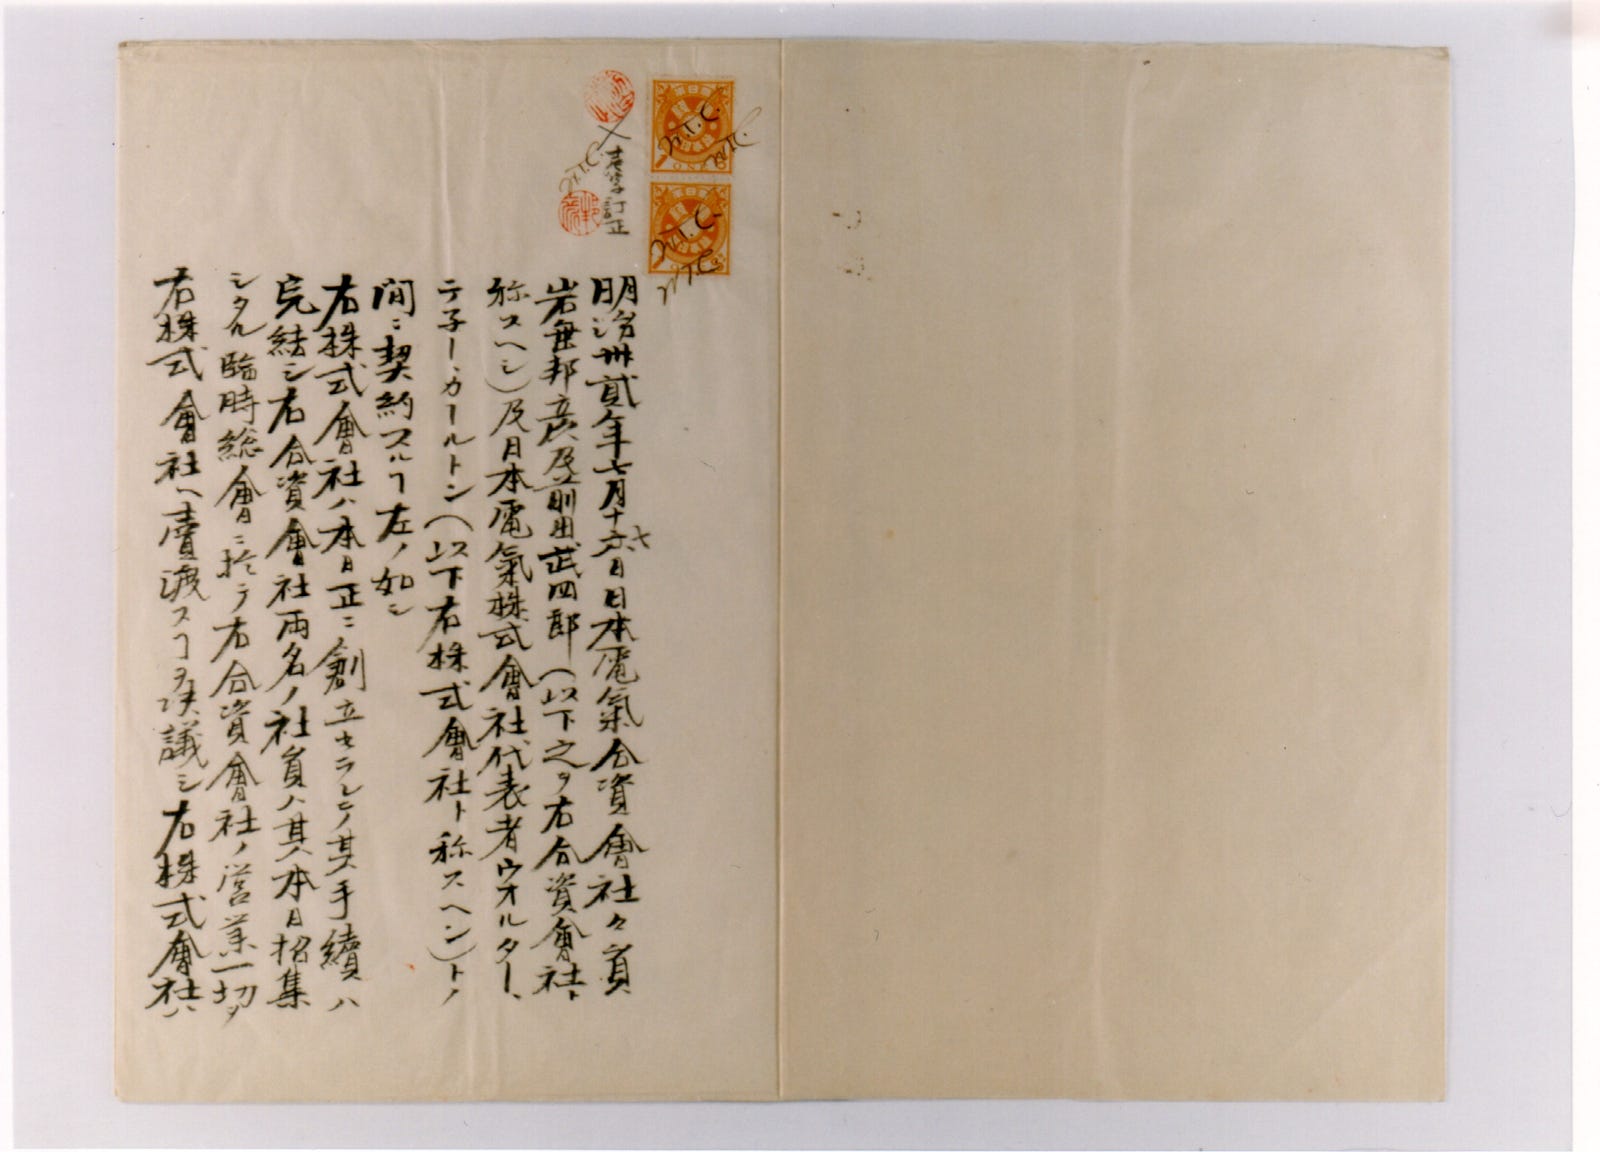 明治卅貳年七月十六七日日本電氣合資會社々員
岩垂邦彦及前田武四郎(以下之ヲ右合資會社ト
称スヘシ)及日本電氣株式會社代表者ウオルター、
テ子ー、カールトン(以下右株式會社ト称スヘシ)トノ
間ニ契約スルヿ左ノ如シ
右株式會社ハ本日正ニ創立セラレ其手續ハ
完結シ右合資會社両名ノ社員ハ其本日招集
シタル臨時総會ニ於テ右合資會社ノ営業一切ヲ
右株式會社ヘ賣渡スヿヲ决議シ右株式會社ハ
壱字訂正
W.T.C.
W.T.C.
W.T.C.
W.T.C.
W.T.C.
ONE